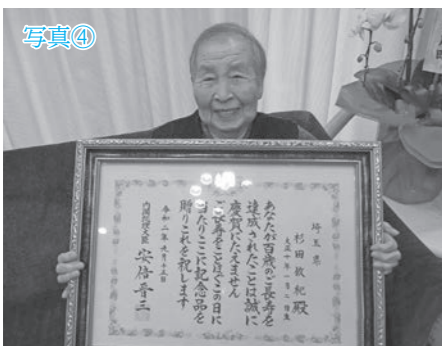 写真④
埼玉県
杉田敏紀殿
大正十年一月二日生
あなたが百歳のご長寿を
達成されたことは誠に
慶賀にたえません
ご長寿をことほぐこの日に
当たりここに記念品を
贈りこれを祝します
令和二年九月十五日
内閣総理大臣 安倍晋三